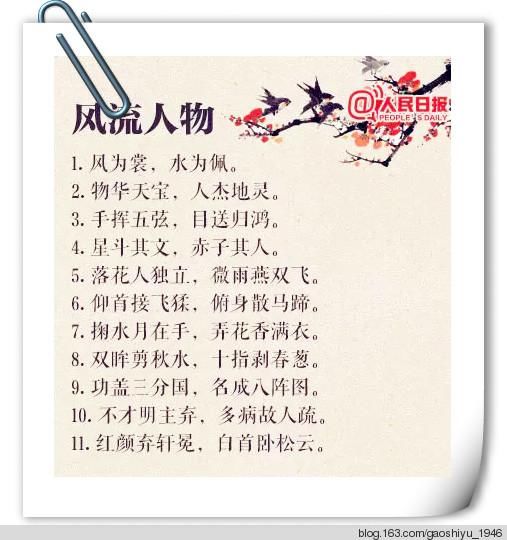 风流人物
@人民日报
PEOPLE'S DAILY
1. 风为裳，水为佩。
2. 物华天宝，人杰地灵。
3. 手挥五弦，目送归鸿。
4. 星斗其文，赤子其人。
5. 落花人独立，微雨燕双飞。
6. 仰首接飞猱，俯身散马蹄。
7. 掬水月在手，弄花香满衣。
8. 双眸剪秋水，十指剥春葱。
9. 功盖三分国，名成八阵图。
10. 不才明主弃，多病故人疏。
11. 红颜弃轩冕，白首卧松云。
blog.163.com/gaoshiyu_1946